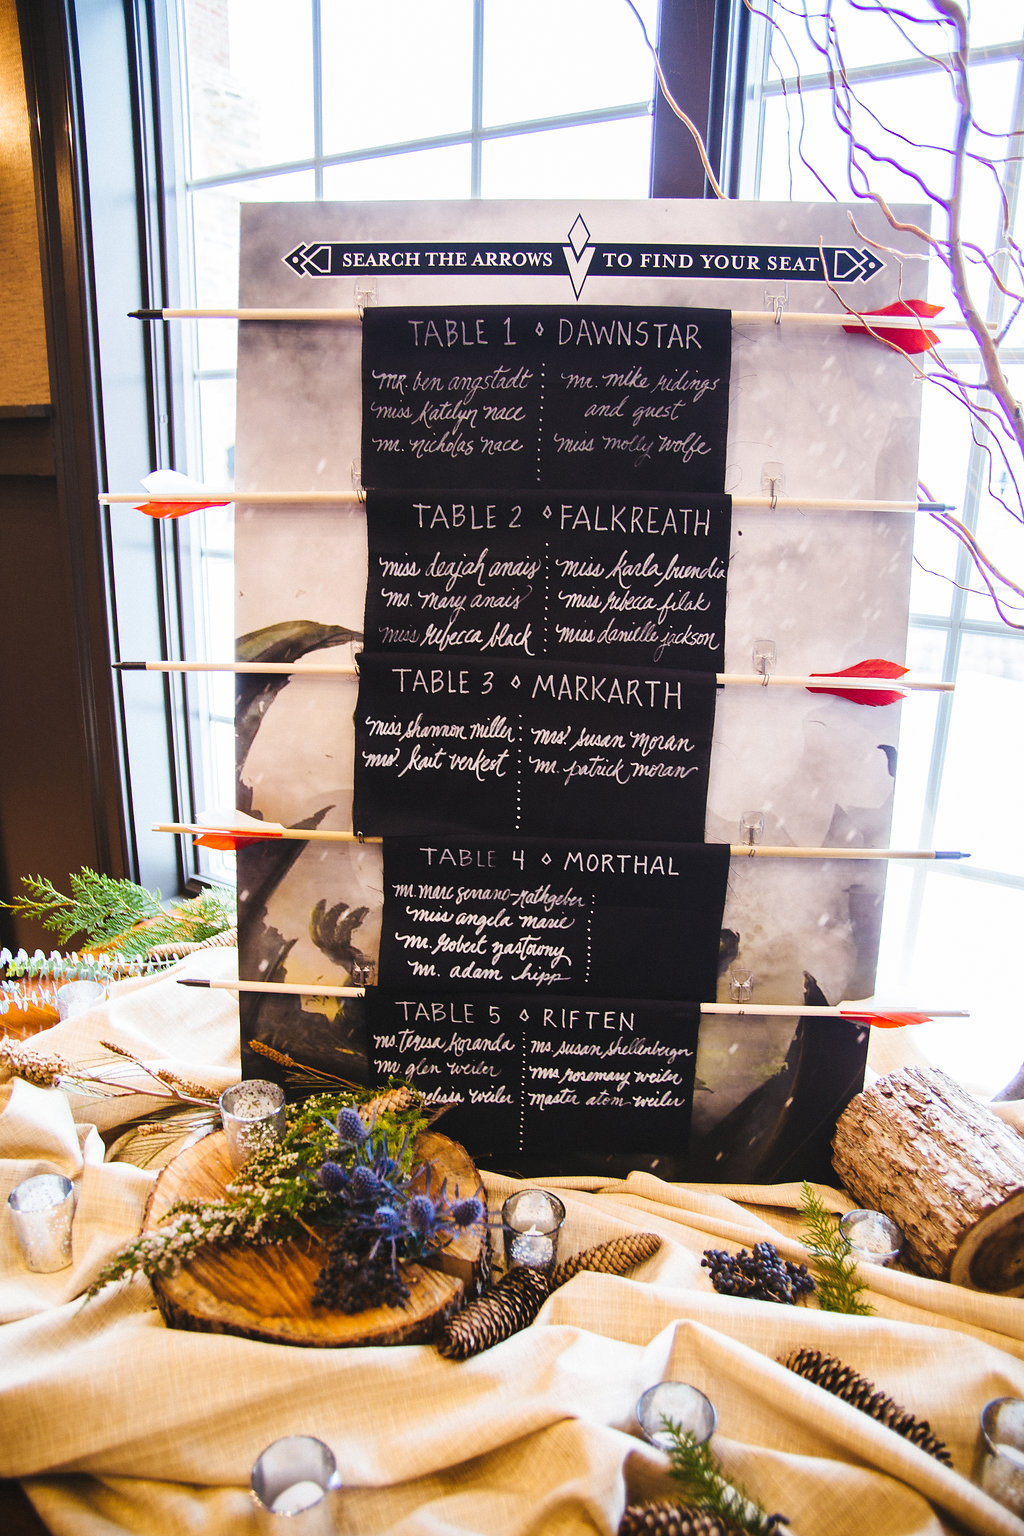 SEARCH THE ARROWS TO FIND YOUR SEAT
TABLE 1 ◇ DAWNSTAR
mr. ben angstadt
miss katelyn nace
mr. nicholas nace
mr. mike ridings
and guest
miss molly wolfe
TABLE 2 ◇ FALKREATH
miss deajah anais
ms. mary anais
miss rebecca black
miss karla buendia
miss rebecca filak
miss danielle jackson
TABLE 3 ◇ MARKARTH
miss shannon miller
mrs. kait verkest
mrs. susan moran
mr. patrick moran
TABLE 4 ◇ MORTHAL
mr. marc serrano-rathgeber
miss angela marie
mr. robert gastowny
mr. adam hipp
TABLE 5 ◇ RIFTEN
ms. teresa koranda
mr. glen weiler
weiler
ms. susan shellenberger
mrs rosemary weiler
master atom weiler